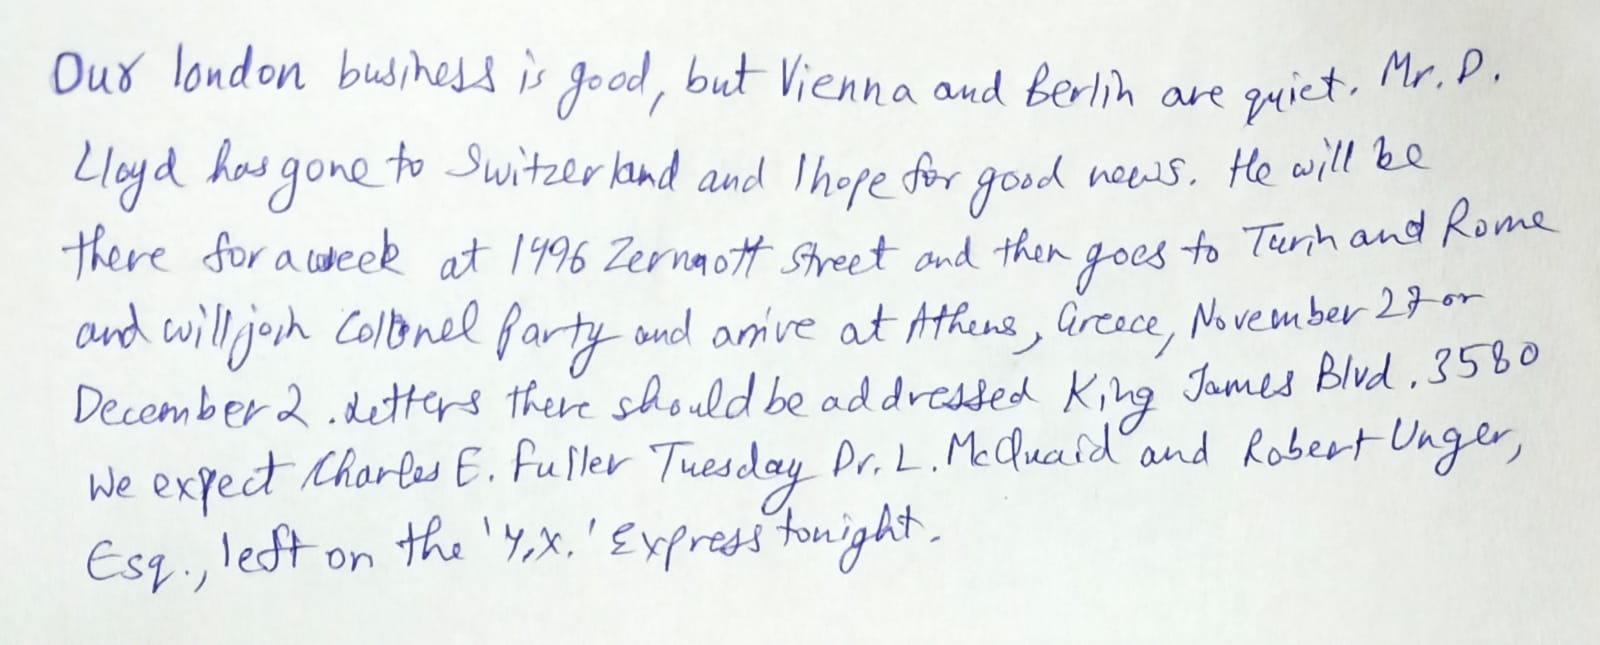 Our london business is good, but Vienna and Berlin are quiet. Mr. D.
Lloyd has gone to Switzerland and I hope for good news. He will be
there for a week at 1496 Zermott Street and then goes to Turin and Rome
and will join Collonel Party and arrive at Athens, Greece, November 27 or
December 2. Letters there should be addressed King James Blvd. 3580
We expect Charles E. Fuller Tuesday Dr. L. McQuaid and Robert Unger,
Esq., left on the 'Y.X.' Express tonight.